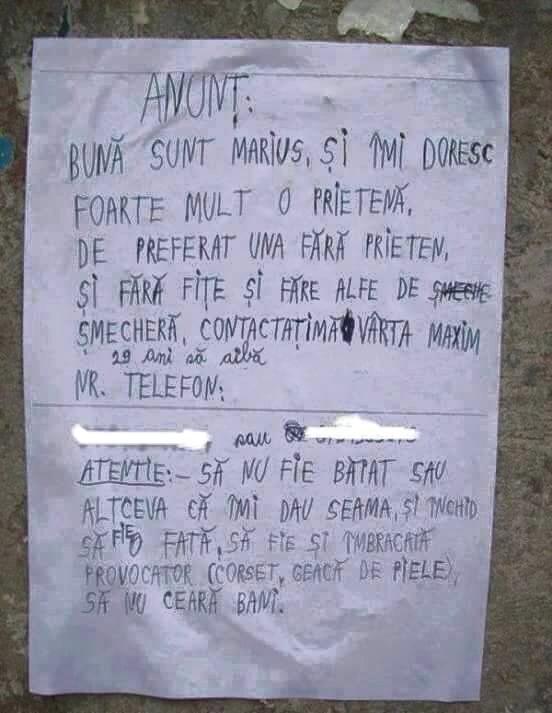 ANUNȚ:
BUNĂ SUNT MARIUS, ȘI ÎMI DORESC
FOARTE MULT O PRIETENĂ,
DE PREFERAT UNA FĂRĂ PRIETEN,
ȘI FĂRĂ FIȚE ȘI FĂRE ALFE DE ȘMECHE
ȘMECHERĂ, CONTACTAȚIMĂ VÂRTA MAXIM
29 ani să aibă
NR. TELEFON:
sau
ATENTIE:- SĂ NU FIE BĂIAT SAU
ALTCEVA CĂ ÎMI DAU SEAMA, ȘI ÎNCHID
SĂ FIE O FATĂ, SĂ FIE ȘI ÎMBRACATĂ
PROVOCATOR (CORSET, GEACĂ DE PIELE),
SĂ NU CEARĂ BANI.